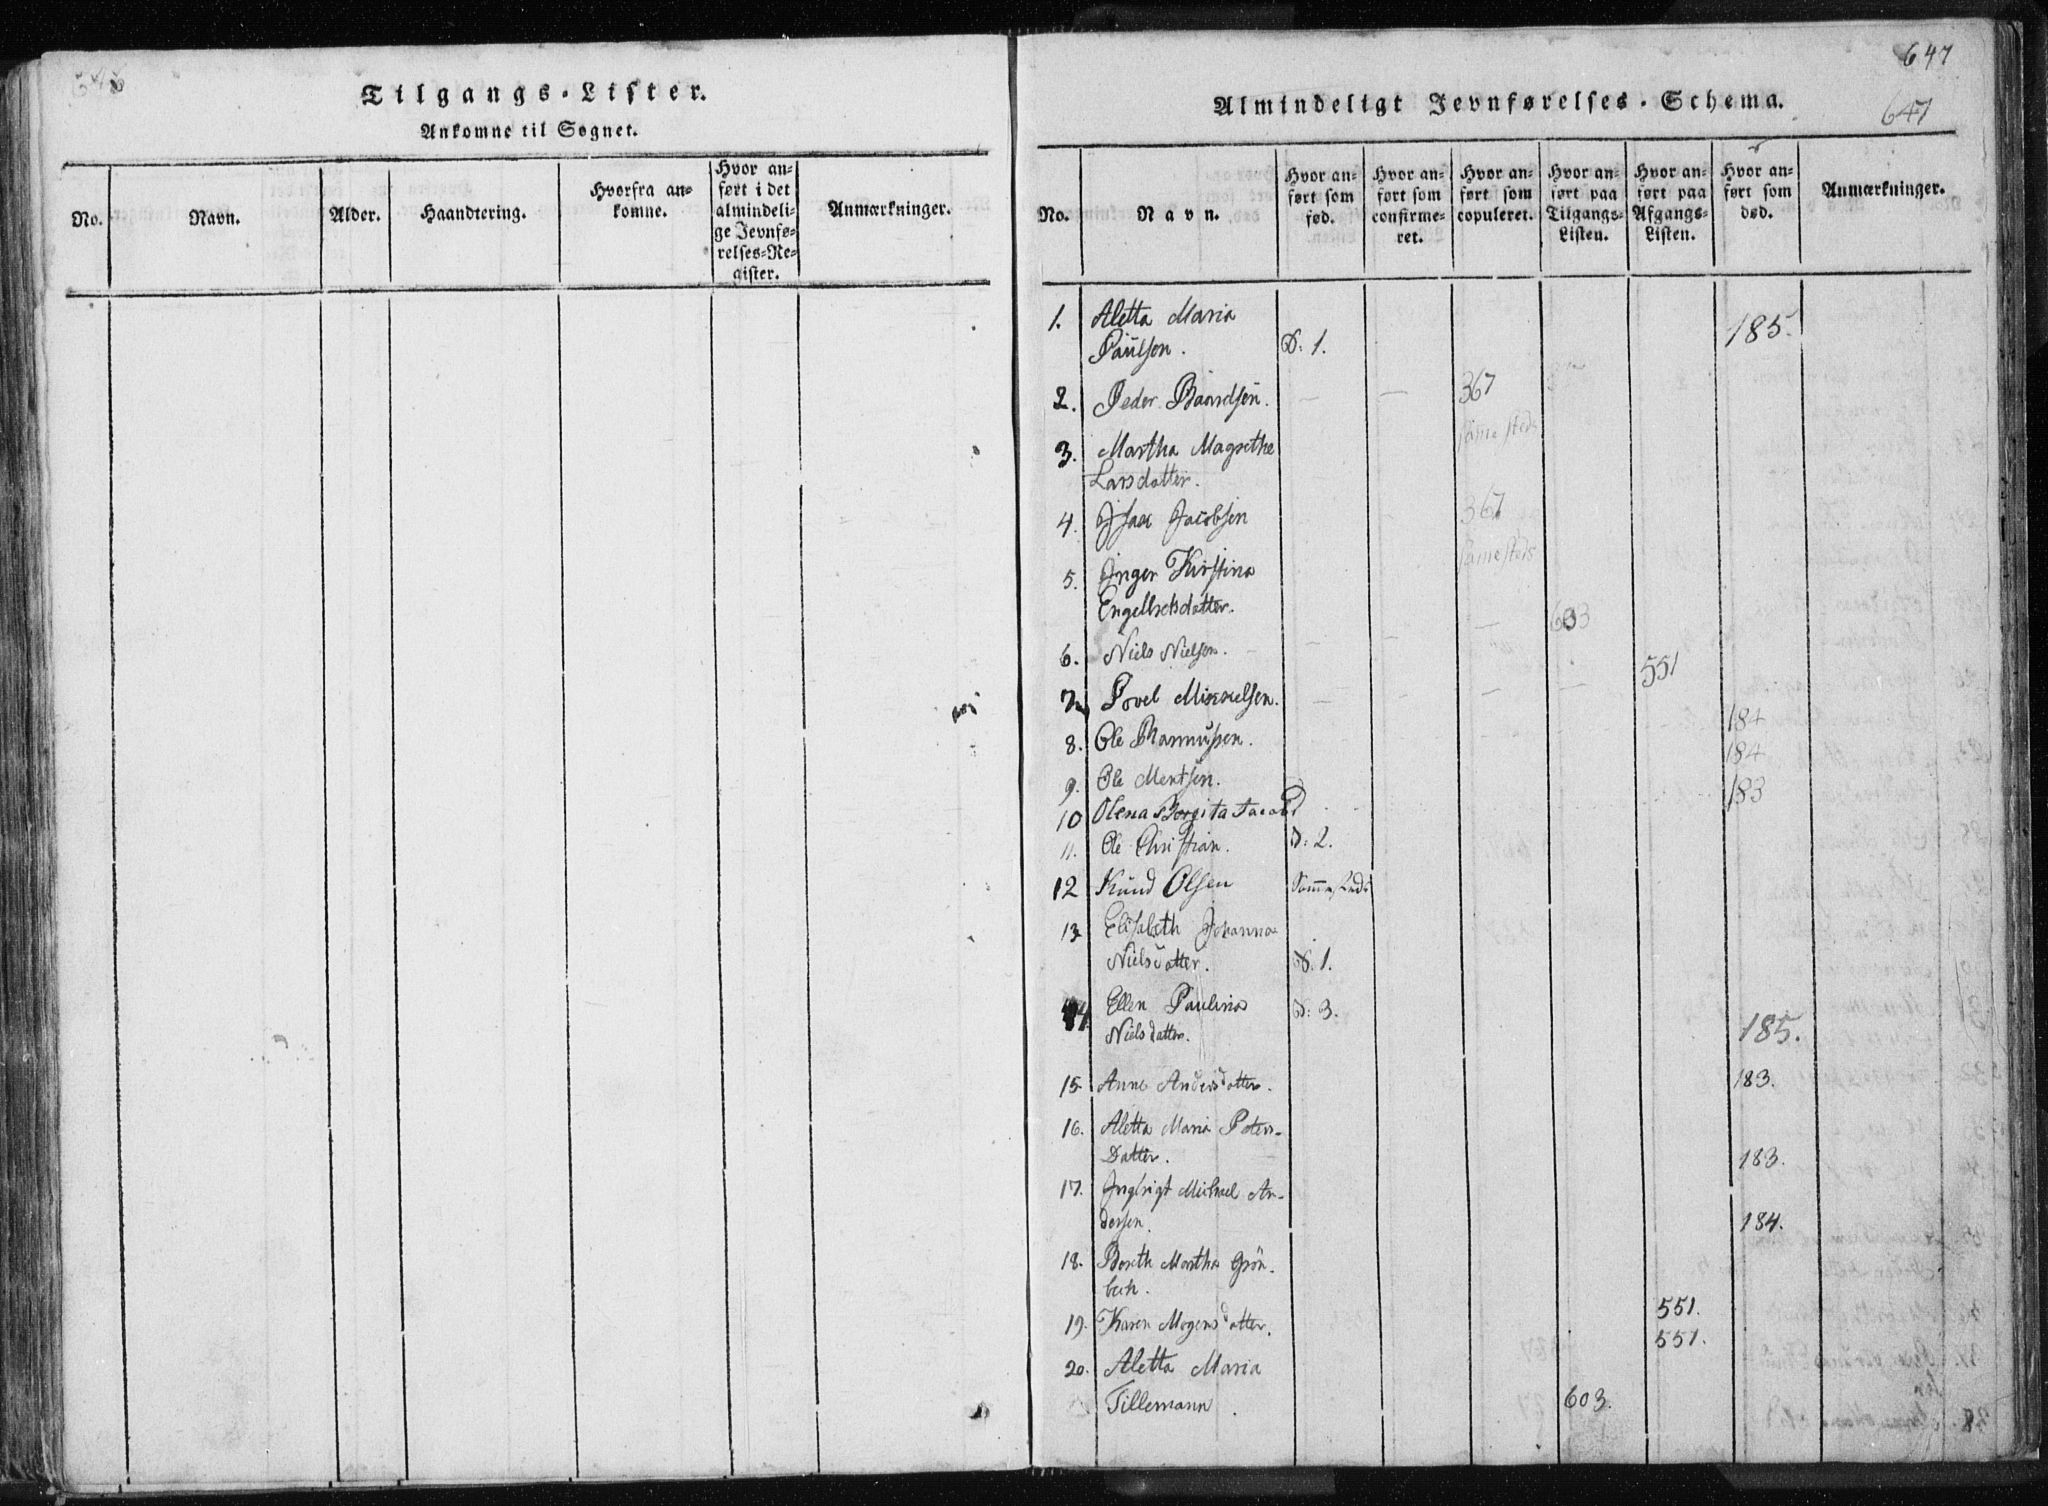 646
Tilgangs-Lister.
Ankomne til Sognet.
No.
Navn.
Alder.
Haandtering.
Hvorfra an-
komne.
Hvor an-
ført i det
almindeli-
ge Jevnfø-
relses-Re-
gister.
Anmærkninger.
647
Almindeligt Jevnførelses-Schema.
647
No.
Navn.
Hvor an-
ført som
fød.
Hvor an-
ført som
confirme-
ret.
Hvor an-
ført som
copuleret.
Hvor an-
ført paa
Tilgangs-
Listen.
Hvor an-
ført paa
Afgangs-
Listen.
Hvor an-
ført som
død.
Anmærkninger.
1. Aletta Maria
Paulsen. D: 1. 185.
2. Peder Baardsen. — — 367
3. Martha Magrethe samesteds
Larsdatter.
4. Isaac Jacobsen 367
5. Inger Kirstina samesteds
Engelbretsdatter.
6. Niels Nielsen. — — — 603
7. Povel Mikkelsen. — — — 551
8. Ole Rasmussen. 184
9. Ole Mentsen. 184
10 Olena Borgita Jacobsd 183
11. Ole Christian. D: 2.
12 Knud Olsen Sammesteds
13 Elisabeth Johanna
Nielsdatter. D. 1.
14 Ellen Paulina D: 3.
Nielsdatter. 185.
15. Anne Andersdatter. 183.
16. Aletta Maria Peters-
Datter. 183.
17. Ingbrigt Michael An-
dersen. 184.
18. Bereth Martha Grön-
bech. 551.
19. Karen Mogensdatter. 551.
20. Aletta Maria
Tillemann. 603.